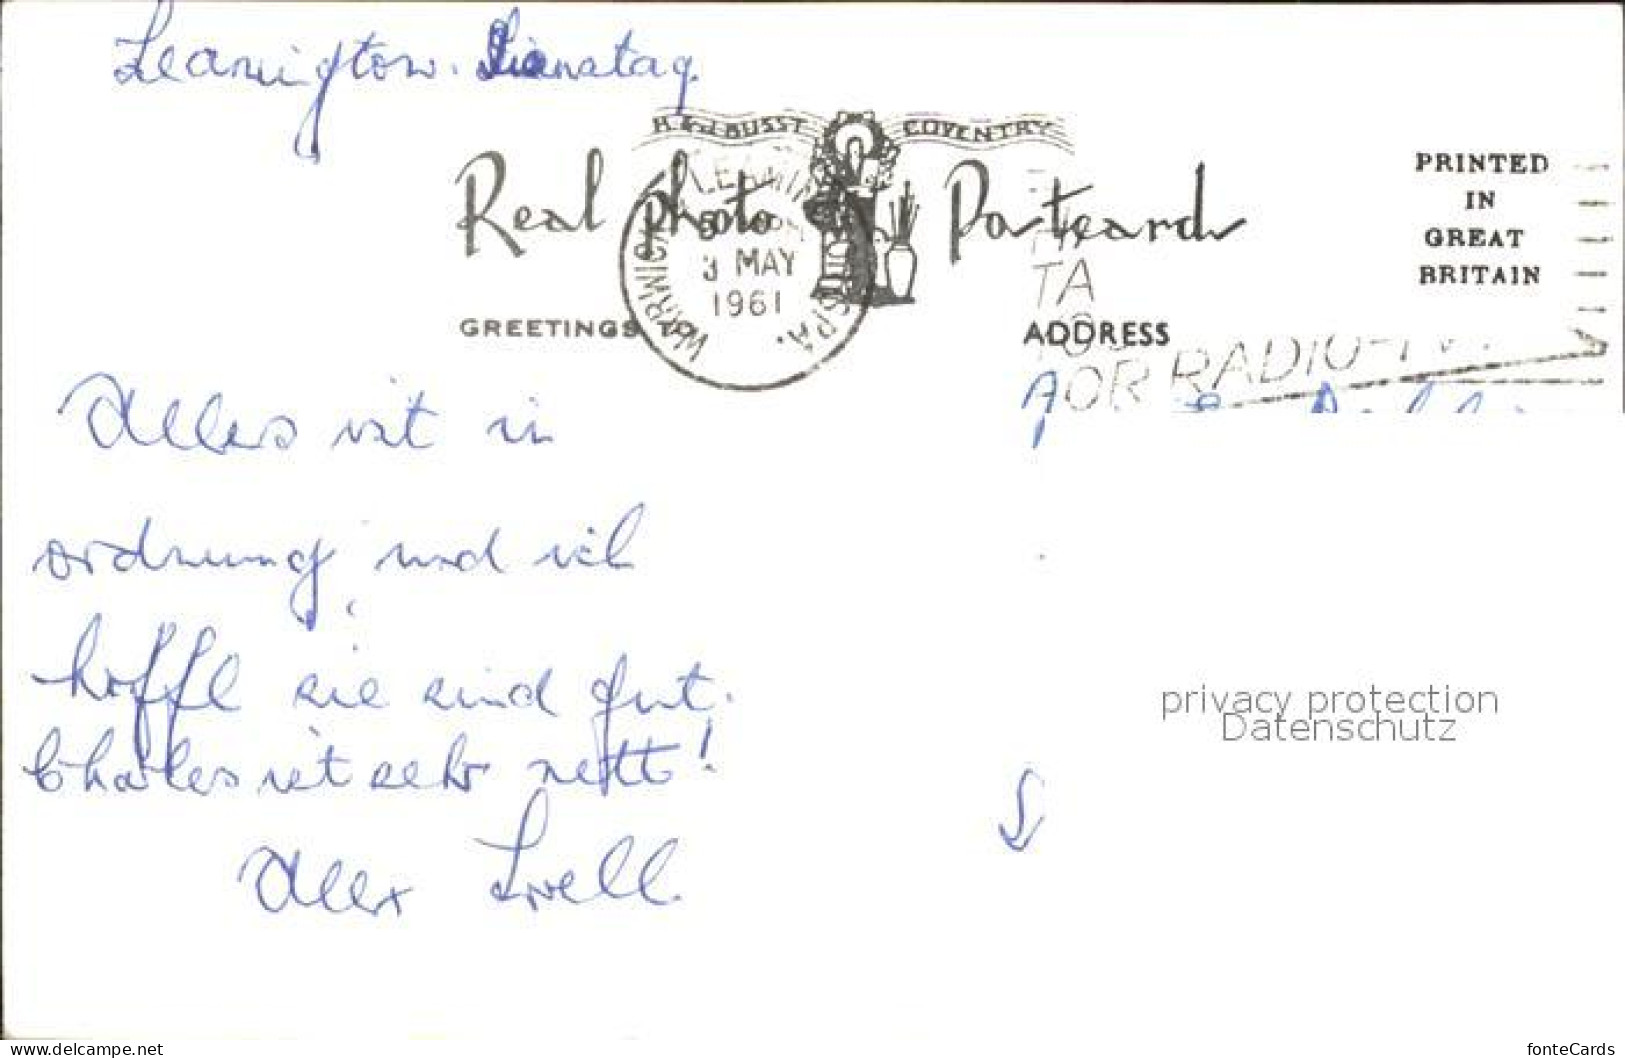 Leamigton. Dienstag.
H. & J. BUSST COVENTRY
Real photo Postcard
PRINTED
IN
GREAT
BRITAIN
LEAMINGTON SPA. WARWICK
3 MAY
1961
GREETINGS TO
ADDRESS
TA
FOR RADIO-TV
Alles ist in
ordnung und ich
hoffe sie sind gut.
Charles ist sehr nett!
Alex Lovell
privacy protection
Datenschutz
www.delcampe.net
fonteCards